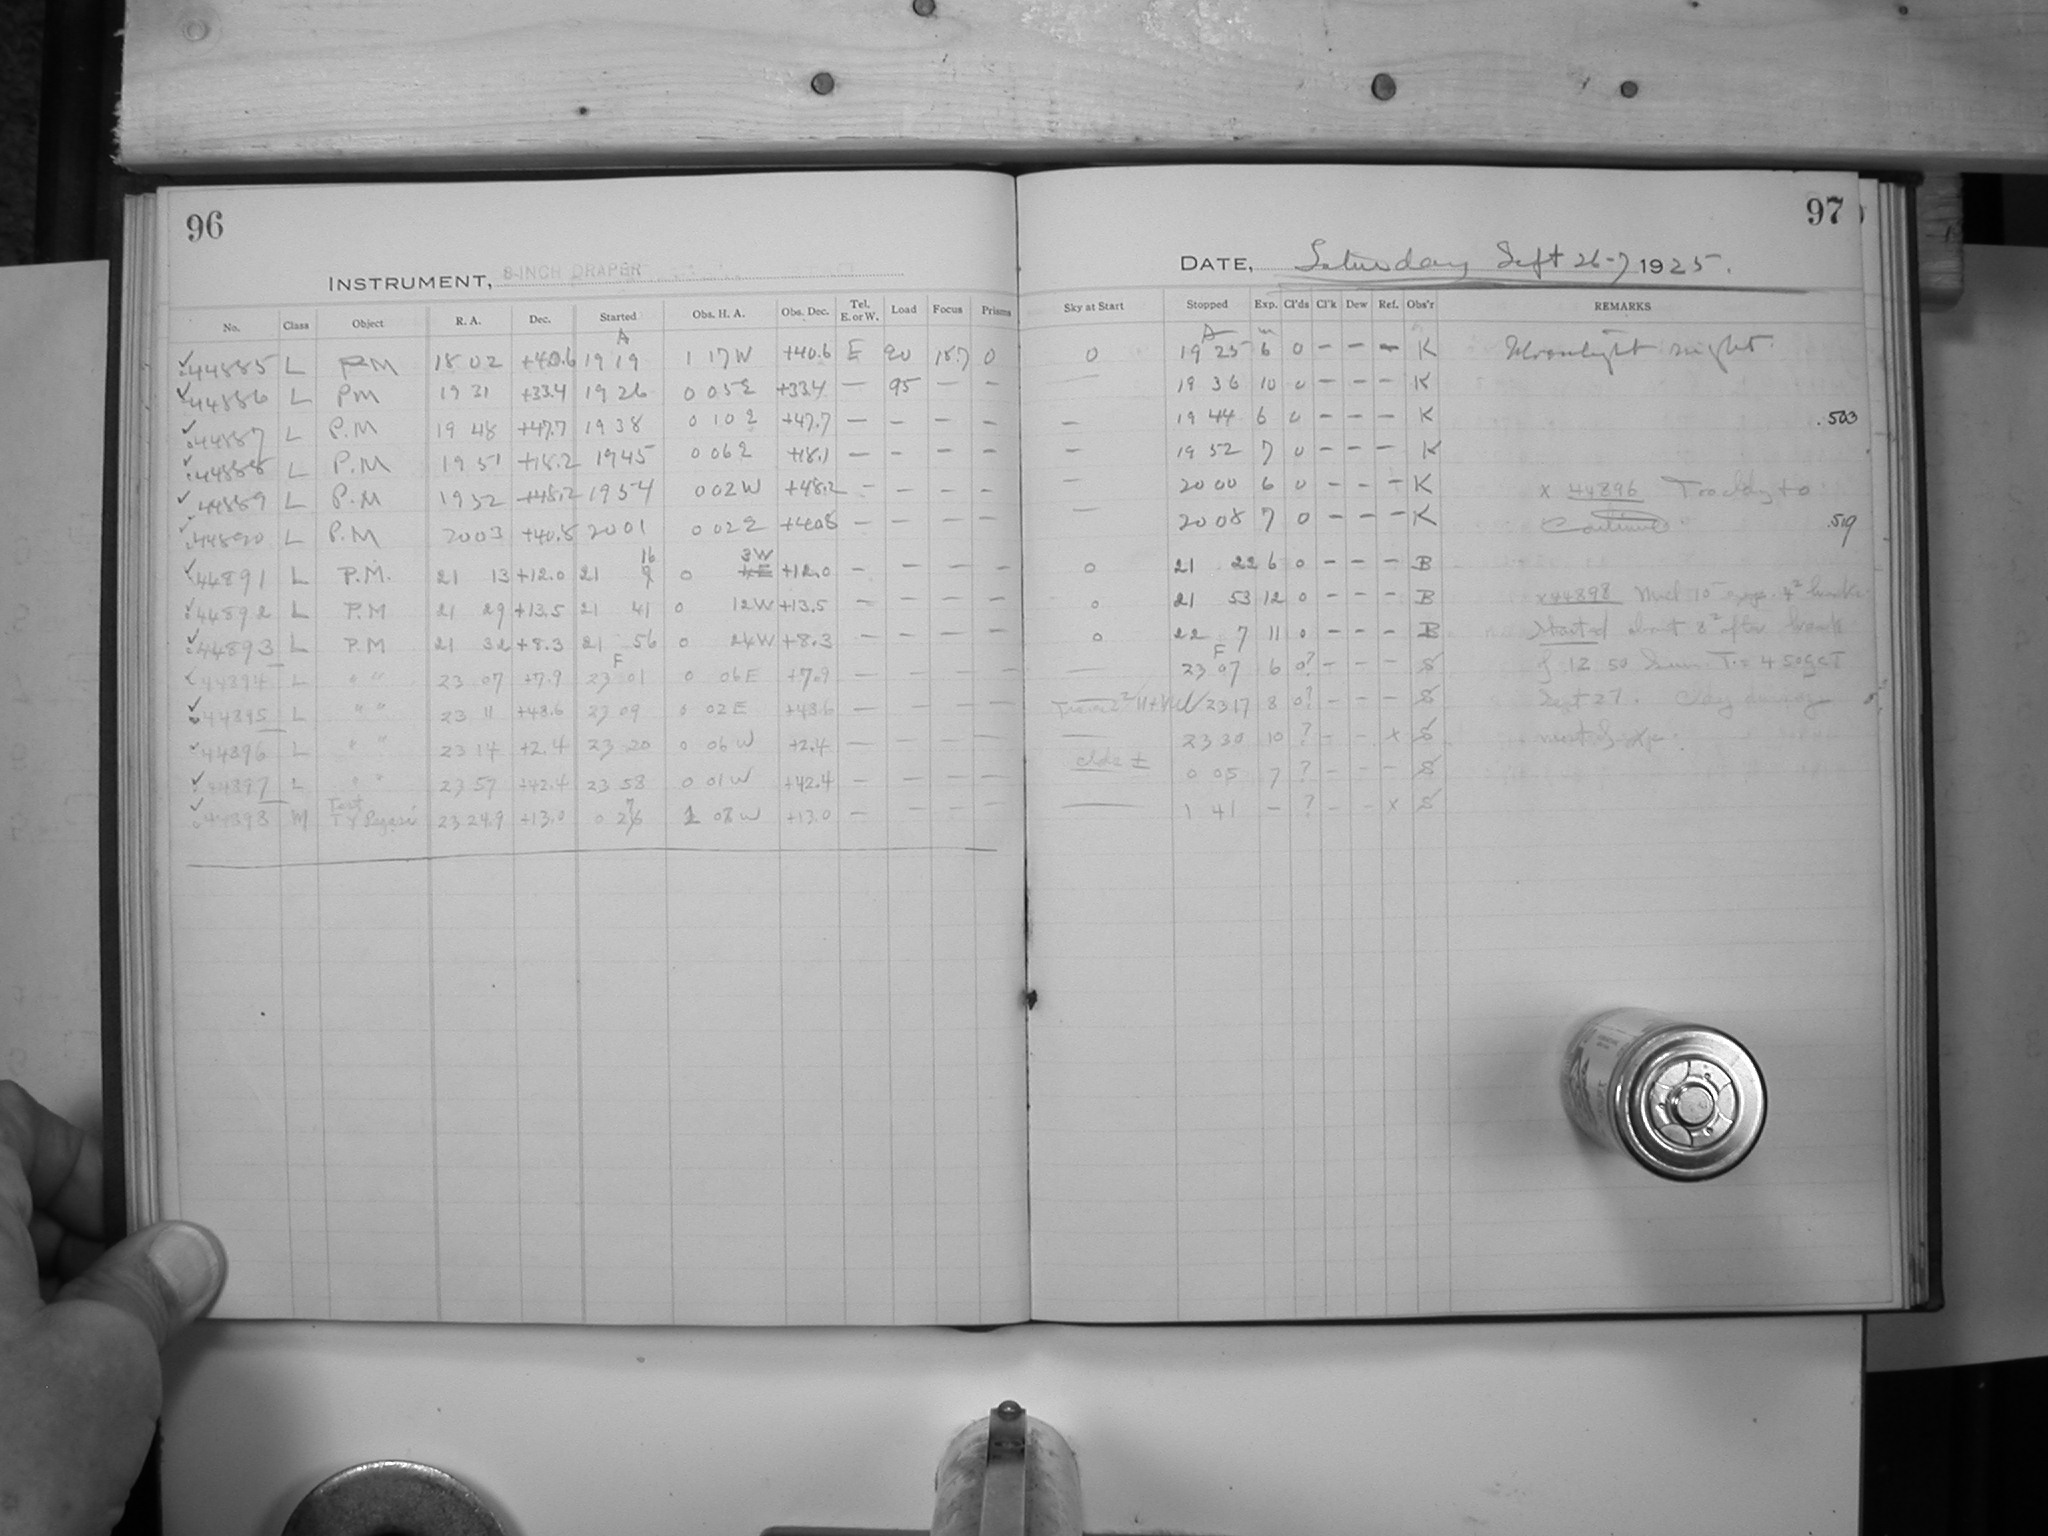 96
INSTRUMENT, 8-INCH DRAPER
No. Class Object R. A. Dec. Started Obs. H. A. Obs. Dec. Tel. E. or W. Load Focus Prisms
A
44885 L PM 18 02 +40.6 19 19 1 17 W +40.6 E 90 18.7 0
44886 L PM 19 31 +33.4 19 26 0 05 E +33.4 — 95 — —
44887 L P.M 19 48 +47.7 19 38 0 10 E +47.7 — — — —
44888 L P.M 19 51 +18.2 19 45 0 06 E +18.1 — — — —
44889 L P.M 19 52 +48.2 19 54 0 02 W +48.2 — — — —
44890 L P.M 20 03 +40.8 20 01 0 02 E +40.8 — — — —
16 3W
44891 L P.M. 21 13 +12.0 21 0 +12.0 — — — —
44892 L P.M 21 29 +13.5 21 41 0 12W +13.5 — — — —
44893 L P.M 21 32 +8.3 21 56 0 24W +8.3 — — — —
F
44894 L " " 23 07 +7.9 23 01 0 06 E +7.9 — — — —
44895 L " " 23 11 +48.6 23 09 0 02 E +48.6 — — — —
44896 L " " 23 14 +2.4 23 20 0 06 W +2.4 — — — —
44897 L " " 23 57 +42.4 23 58 0 01 W +42.4 — — — —
Test
44898 M Pegasi 23 24.9 +13.0 0 1 08 W +13.0 — — — —
97
DATE, Saturday Sept 26-7 1925.
Sky at Start Stopped Exp. Cl'ds Cl'k Dew Ref. Obs'r REMARKS
A m
0 19 25 6 0 — — — K Moonlight night.
— 19 36 10 0 — — — K
— 19 44 6 0 — — — K .503
— 19 52 7 0 — — — K
— 20 00 6 0 — — — K x 44896 to
— 20 08 7 0 — — — K Continue .519
0 21 22 6 0 — — — B
0 21 53 12 0 — — — B x 44898
0 22 7 11 0 — — — B Started about after
F
— 23 07 6 0? — — — S of 12 50
23 17 8 0? — — — S Sept 27.
— 23 30 10 ? — — x S
clds ± 0 05 7 ? — — — S
— 1 41 — ? — — x S